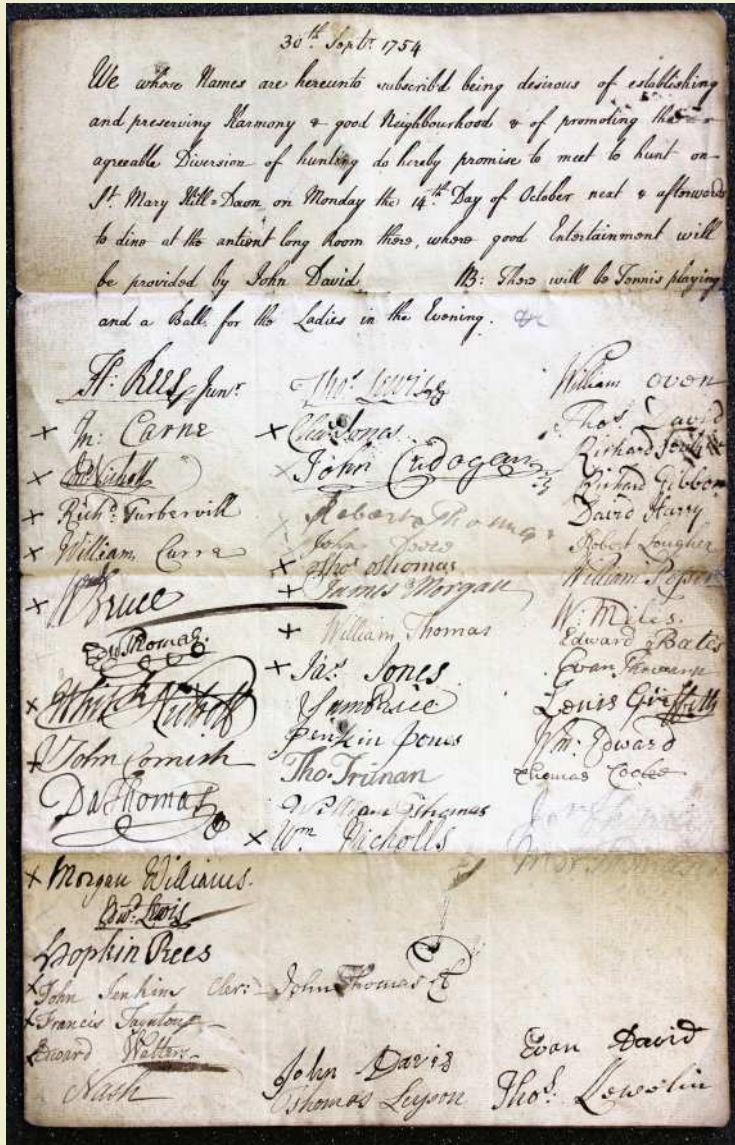 30th Septr 1754
We whose Names are hereunto subscribd being desirous of establishing
and preserving Harmony & good Neighbourhood & of promoting the
agreeable Diversion of hunting do hereby promise to meet to hunt on
St. Mary Hill=Down on Monday the 14th Day of October next & afterwards
to dine at the antient long Room there, where good Entertainment will
be provided by John David NB: There will be Tennis playing
and a Ball for the Ladies in the Evening.
H: Rees Junr
Jn: Carne
Nicholl
Richd Turbervill
William Curre
Bruce
Edd Thomas
Whitlk Nicholl
John Cornish
Da Thomas
Morgan Williams.
Edwd Lewis
Hopkin Rees
John Jenkins Cler:
Francis Taynton
Edward Walters
Nash
Thos Lewis
Chas Jones
John Cadogan
Robert Thomas
John David
Thos Thomas
James Morgan
William Thomas
Jas Jones
Sam Price
Jenkin Jones
Tho. Truman
William Thomas
Wm Nicholls
John Thomas
John Davis
Thomas Leyson
William Oven
Thos David
Richard
Richard Gibbon
David Harry
Robert Lougher
William
W. Miles.
Edward Bates
Evan
Louis Griffith
Wm: Edward
Thomas Cooke
Thomas
Evan David
Thos: Llewelin